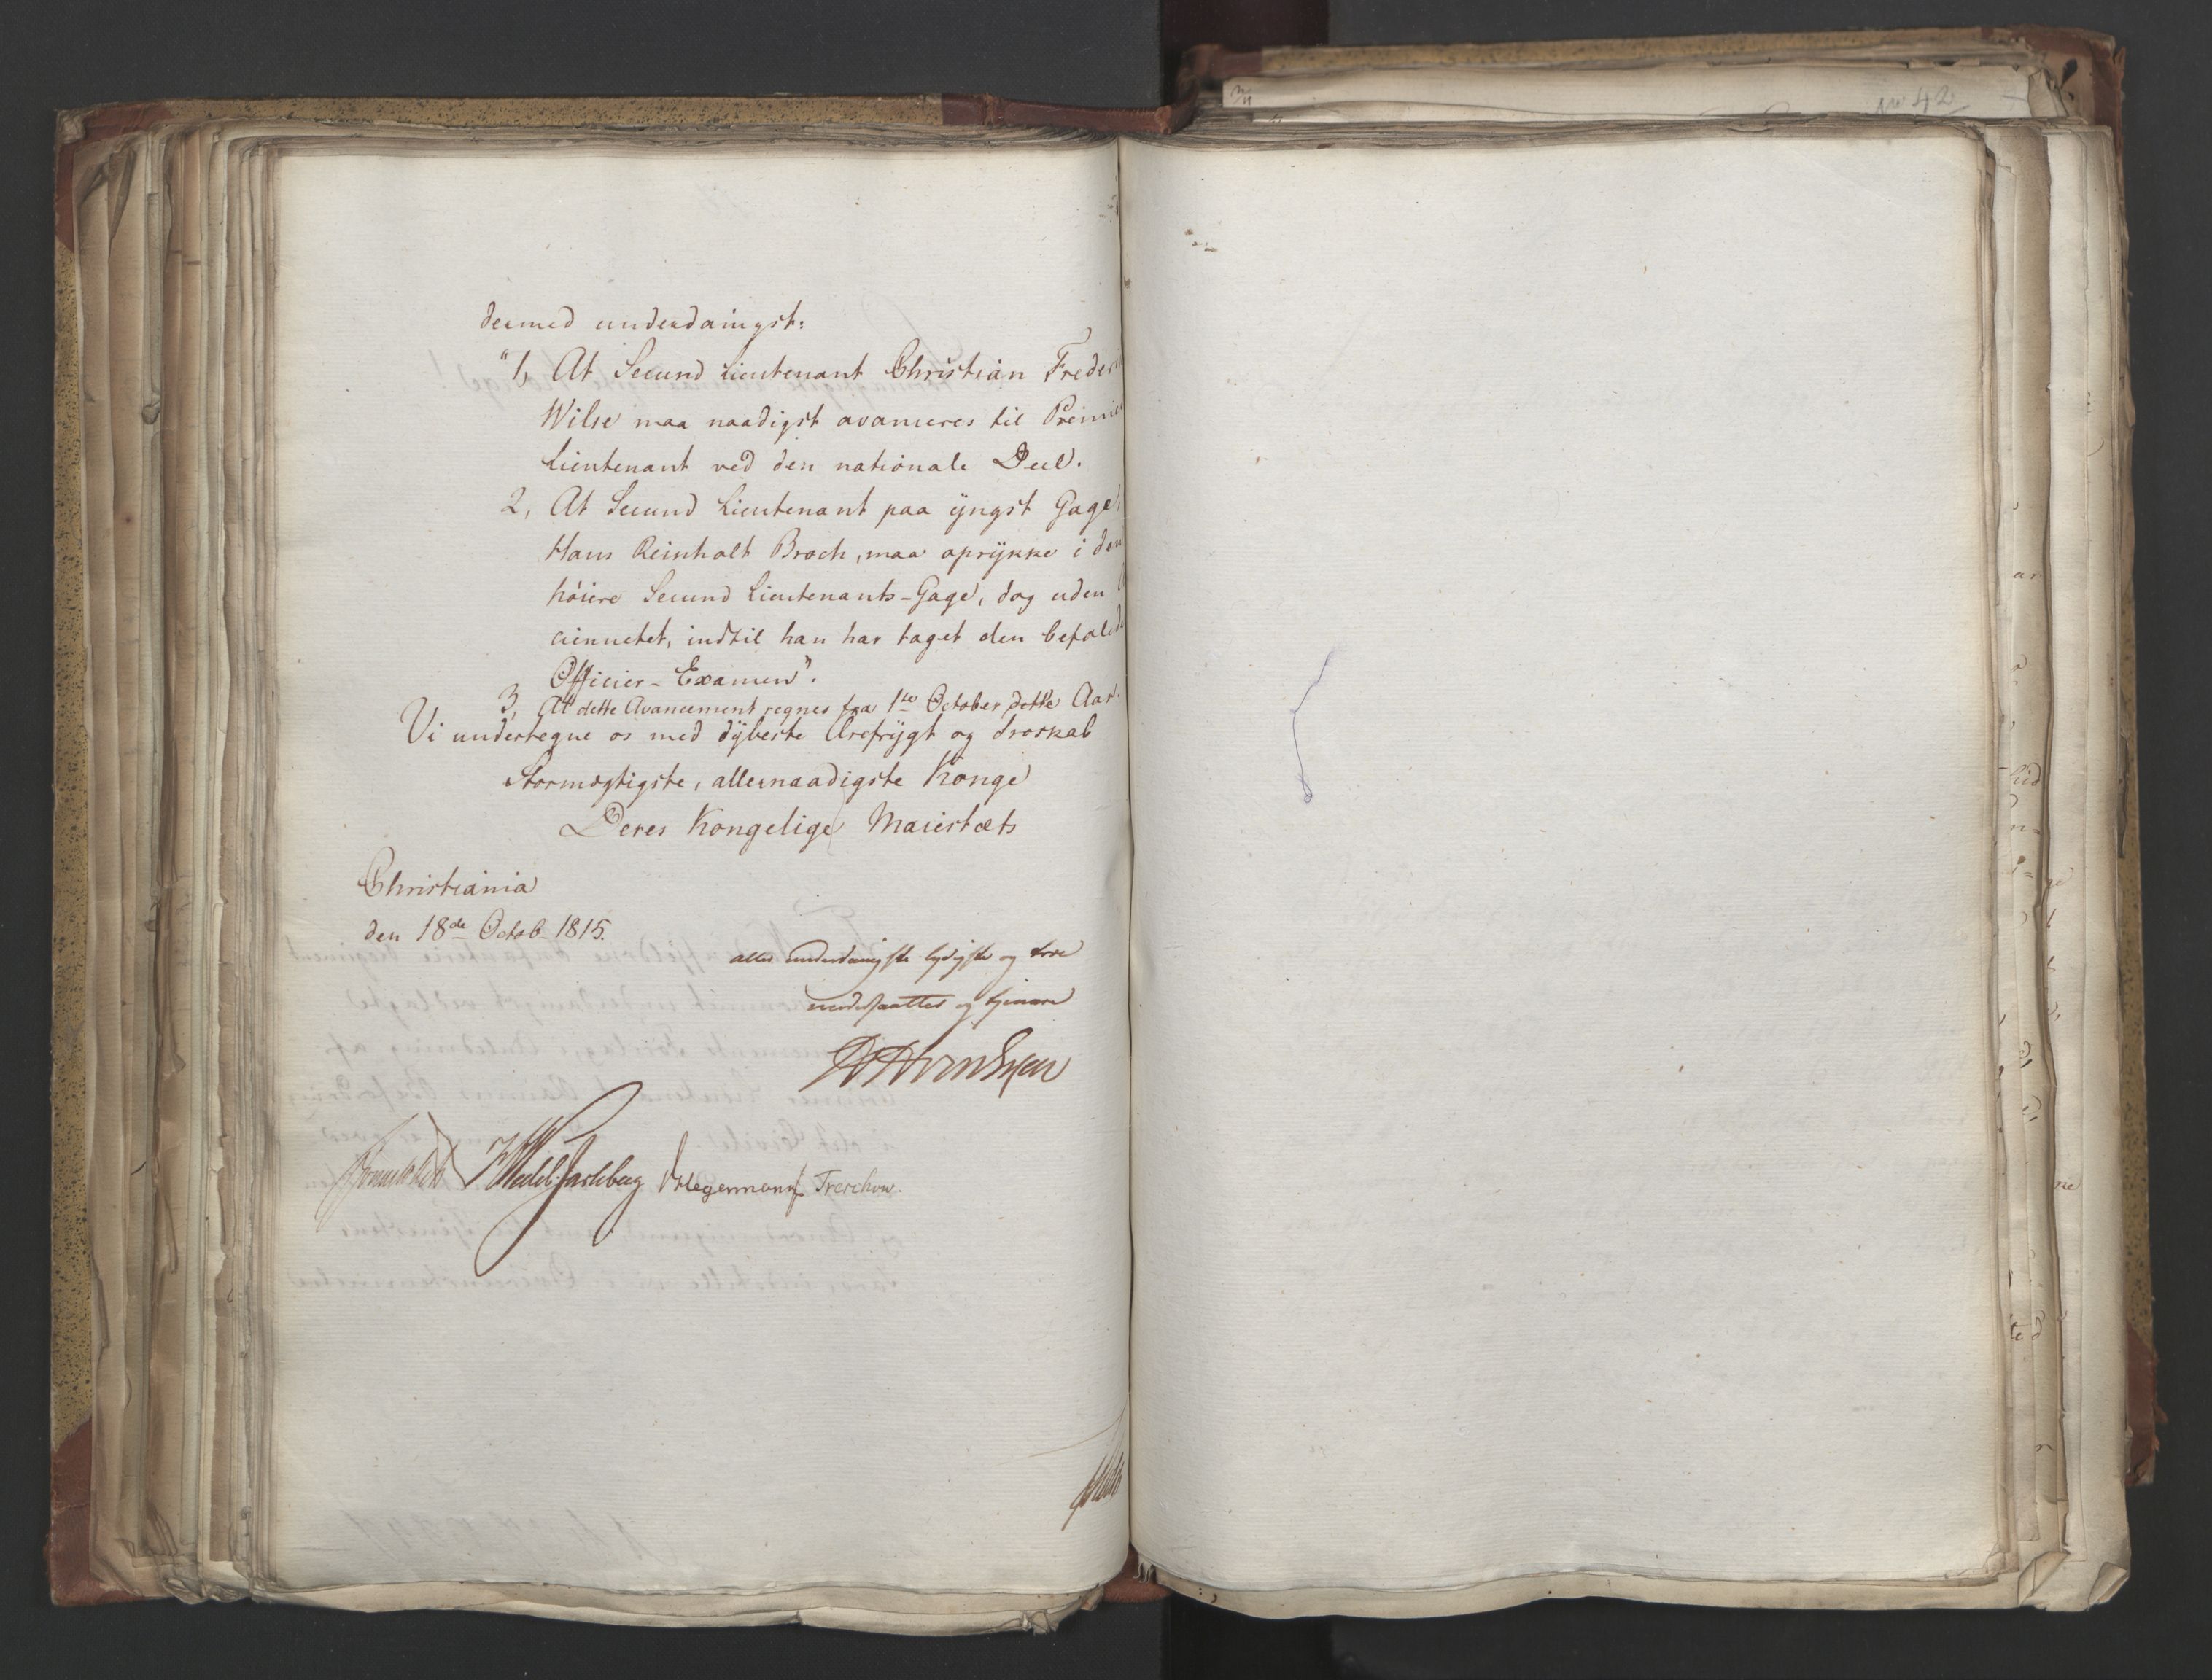 dermed underdanigst:
"1, At Secund Lieutenant Christian Frederi
Wilse maa naadigst avanceres til Premier
Lieutenant ved den nationale Deel.
2, At Secund Lieutenant paa yngst Gage,
Hans Reinholt Broch, maa oprykke i den
høiere Secund Lieutenants-Gage, dog uden
ciennetet, indtil han har taget den befalede
Officier-Examen".
3, At dette Avancement regnes fra 1ste October dette Aar.
Vi undertegne os med dybeste Ærefrygt og Troskab
Stormægtigste, allernaadigste Konge
Deres Kongelige Maiestæts
Christiania
den 18de Octob. 1815.
aller underdanigste lydigste og troe
undersaatter og tjenere
HWedel-Jarlsberg DHegermann Treschow.
No 42